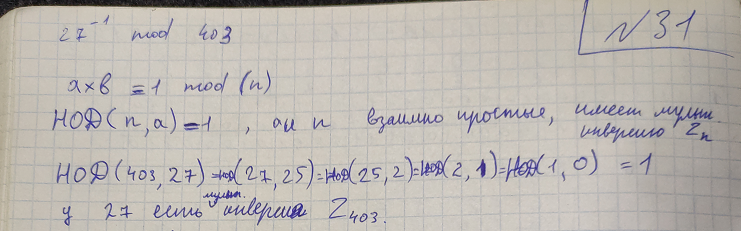 27⁻¹ mod 403
№31
a×b = 1 mod (n)
НОД(n,a)=1 , a и n взаимно простые, имеет мульт.
инверсию Zₙ
НОД(403,27)=НОД(27,25)=НОД(25,2)=НОД(2,1)=НОД(1,0) = 1
мульт.
у 27 есть инверсия Z₄₀₃.